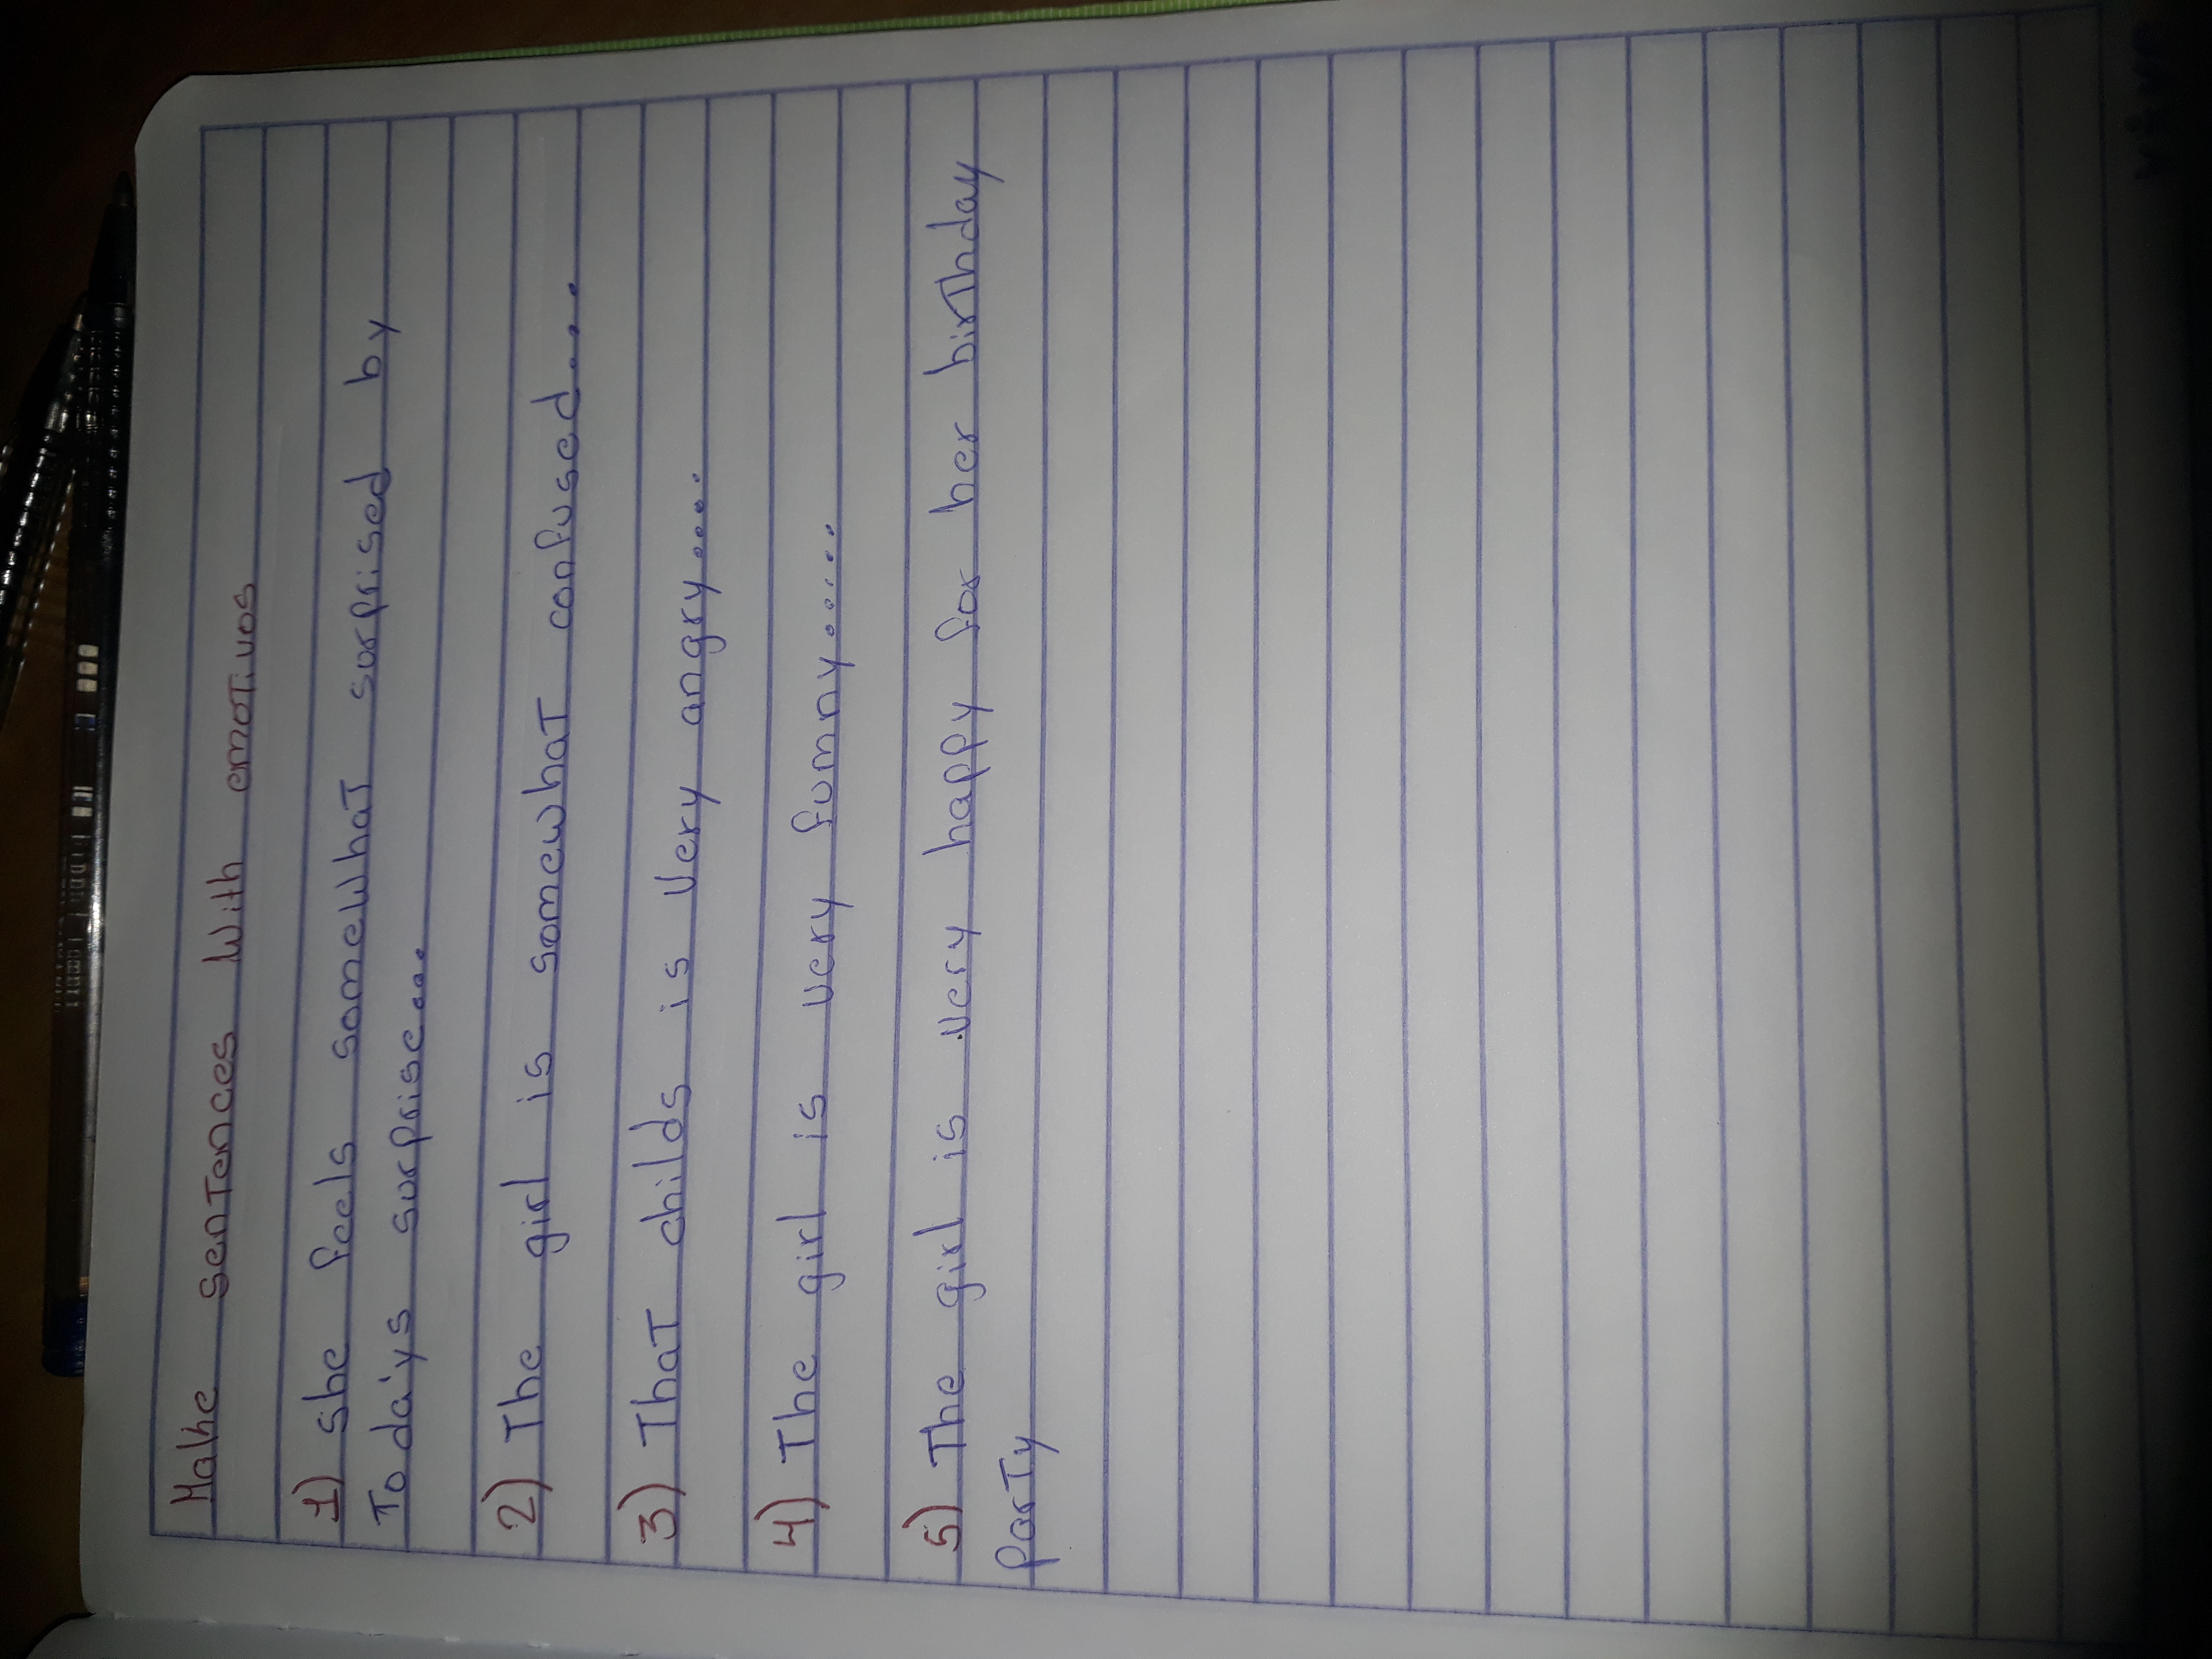 Make sentences With emotivos
1) She feels somewhat surprised by
Toda'ys surprise...
2) The girl is somewhat confused....
3) That childs is Very angry....
4) The girl is very funny.....
5) The girl is very happy for her birthday
party